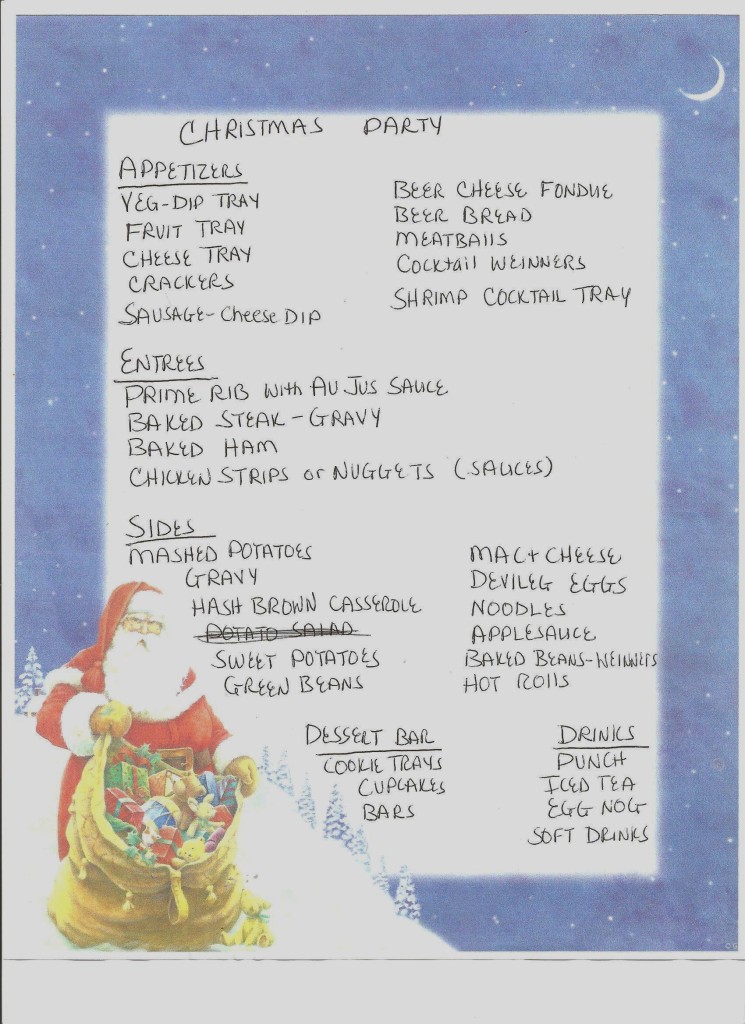 CHRISTMAS PARTY
APPETIZERS
VEG-DIP TRAY
FRUIT TRAY
CHEESE TRAY
CRACKERS
SAUSAGE-Cheese DIP
BEER CHEESE FONDUE
BEER BREAD
MEATBAllS
COCKtail WEINNERS
SHRIMP COCKTAIL TRAY
ENTREES
PRIME RIB with AU JUS SAUCE
BAKED STEAK-GRAVY
BAKED HAM
CHICKEN STRIPS or NUGGETS (SAUCES)
SIDES
MASHED POTATOES
GRAVY
HASH BROWN CASSEROLE
POTATO SALAD
SWEET POTATOES
GREEN BEANS
MAC+CHEESE
DEVILEG EGGS
NOODLES
APPLESAUCE
BAKED BEANS-WEINNERS
HOT ROllS
DESSERT BAR
COOKIE TRAYS
CUPCAKES
BARS
DRINKS
PUNCH
ICED TEA
EGG NOG
SOFT DRINKS